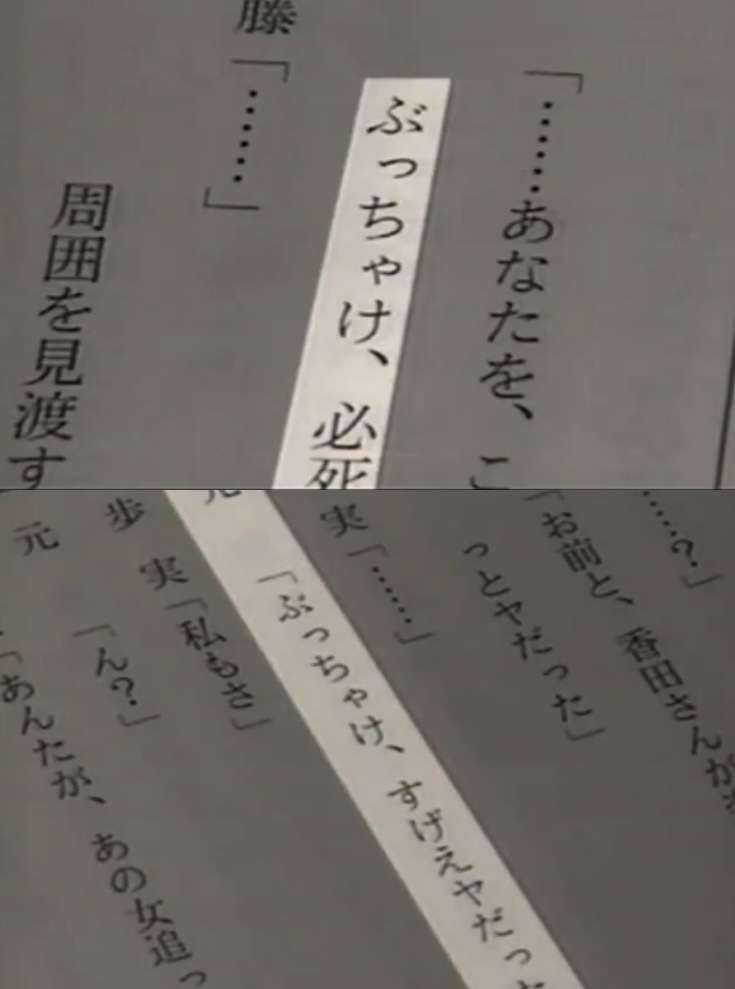 「……あなたを、
ぶっちゃけ、必死
藤「……」
周囲を見渡す
……?」
「お前と、香田さんが
っとヤだった」
実「……」
「ぶっちゃけ、すげえヤだっ
実「私もさ」
歩「ん?」
元「あんたが、あの女追っ